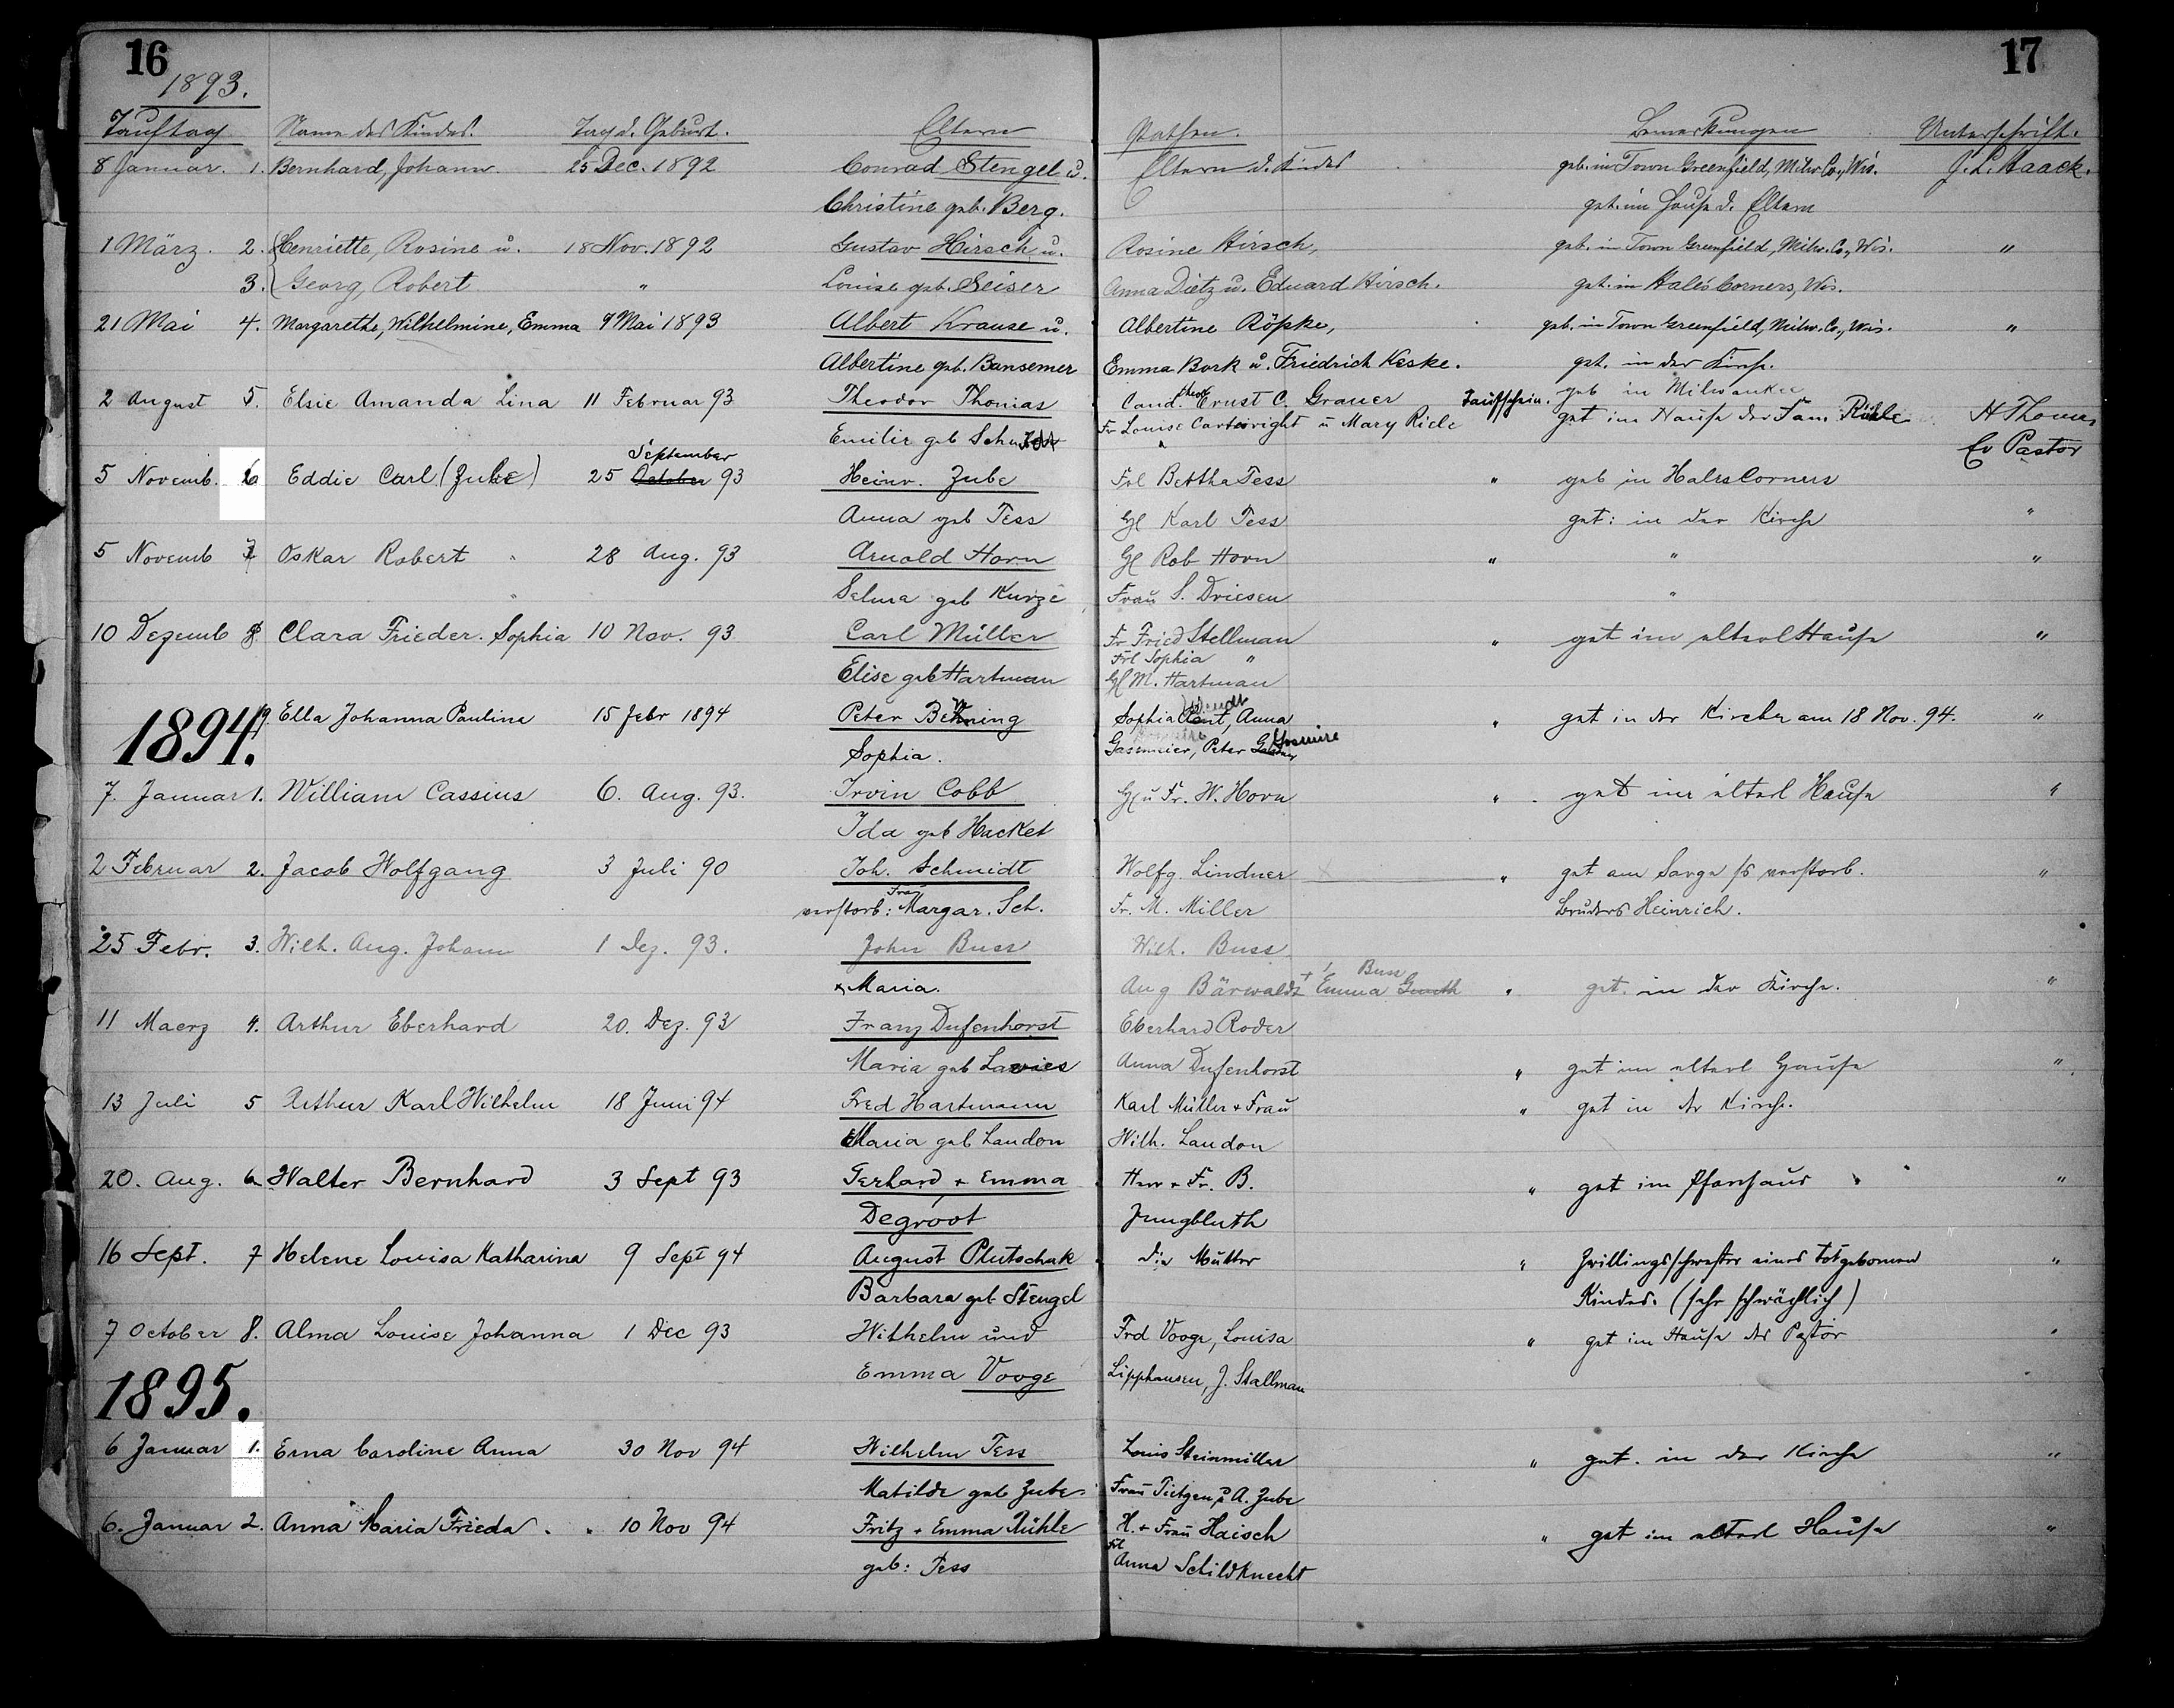 16
17
1893.
Tauftag. Name des Kindes. Tag d. Geburt. Eltern Pathen. Bemerkungen Unterschrift.
8 Januar. 1. Bernhard, Johann. 25 Dec. 1892 Conrad Stengel u. Eltern d. Kindes geb. in Town Greenfield, Milw. Co., Wis. J. L. Haack.
Christine geb. Berg. get. im Hause d. Eltern
1 März. 2. Henriette, Rosine u. 18 Nov. 1892 Gustav Hirsch u. Rosine Hirsch, geb. in Town Greenfield, Milw. Co., Wis. "
3. Georg, Robert " Louise geb. Seiser Anna Dietz u. Eduard Hirsch. get. in Hales Corners, Wis.
21 Mai 4. Margarethe, Wilhelmine, Emma 9 Mai 1893 Albert Krause u. Albertine Röpke, geb. in Town Greenfield, Milw. Co., Wis. "
Albertine geb. Bansemer Emma Bork u. Friedrich Keske. get. in der Kirche.
2 August 5. Elsie Amanda Lina 11 Februar 93 Theodor Thomas Cand. theol Ernst C. Grauer Taufschein. geb in Milwaukee
Emilie geb Fr Louise Cartwright u Mary Riele get im Hause der Fam. H Thomas
Ev Pastor
5 Novemb. 6 Eddie Carl (Zube) 25 October September 93 Heinr. Zube Frl Bertha Tess " geb in Hales Corners
Anna geb Tess H Karl Tess get: in der Kirche "
5 Novemb 7 Oskar Robert 28 Aug. 93 Arnold Horn H Rob Horn " " "
Selma geb Kurze Frau S. Driesen "
10 Dezemb 8 Clara Frieder. Sophia 10 Nov. 93 Carl Müller Fr Fried Stellman " get im elterl Hause "
Frl Sophia "
Elise geb Hartman H M. Hartman
1894. 9. Ella Johanna Paulina 15 Febr 1894 Peter Behning Sophia Wendt, Anna " get in der Kirche am 18 Nov. 94. "
Sophia. Gasmeier, Peter
7. Januar 1. William Cassius 6. Aug. 93. Irvin Cobb H u Fr. W. Horn " get im elterl Hause "
Ida geb Hacket
2 Februar 2. Jacob Wolfgang 3 Juli 90 Joh. Schmidt Wolfg. Lindner " get am Sarge s/s verstorb. "
verstorb: Frau Margar. Sch. Fr. M. Miller Bruders Heinrich.
25 Febr. 3. Wilh. Aug. Johann 1 Dez. 93. John Buss Wilh. Buss
& Maria. Aug Bärwaldt + Emma Buss " get. in der Kirche. "
11 Maerz 4. Arthur Eberhard 20. Dez. 93 Franz Dufenhorst Eberhard Roder
Maria geb Anna Dufenhorst " get im elterl Hause "
13 Juli 5 Arthur Karl Wilhelm 18 Juni 94 Fred Hartmann Karl Müller + Frau " get in der Kirche.
Maria geb Landon Wilh. Landon
20. Aug. 6 Walter Bernhard 3 Sept 93 Gerhard + Emma Herr + Fr. B. " get im Pfarrhaus "
Degroot Jungbluth
16 Sept. 7 Helene Louisa Katharina 9 Sept 94 August Plutschak Die Mutter " Zwillingsschwester eines totgeborenen "
Barbara geb Stengel Kindes. (sehr schwächlich)
7 October 8. Alma Louise Johanna 1 Dec 93 Wilhelm und Frd Vooge, Louisa " get im Hause des Pastor "
Emma Vooge Lipphausen, J. Stallman
1895.
6 Januar 1. Erna Caroline Anna 30 Nov 94 Wilhelm Tess Louis Steinmiller " get. in der Kirche "
Matilde geb Zube. Frau Tietgen, u A. Zube
6. Januar 2. Anna Maria Frieda 10 Nov 94 Fritz + Emma Rühle H. + Frau Haisch " get im elterl Hause "
geb: Tess Frl Anna Schildknecht